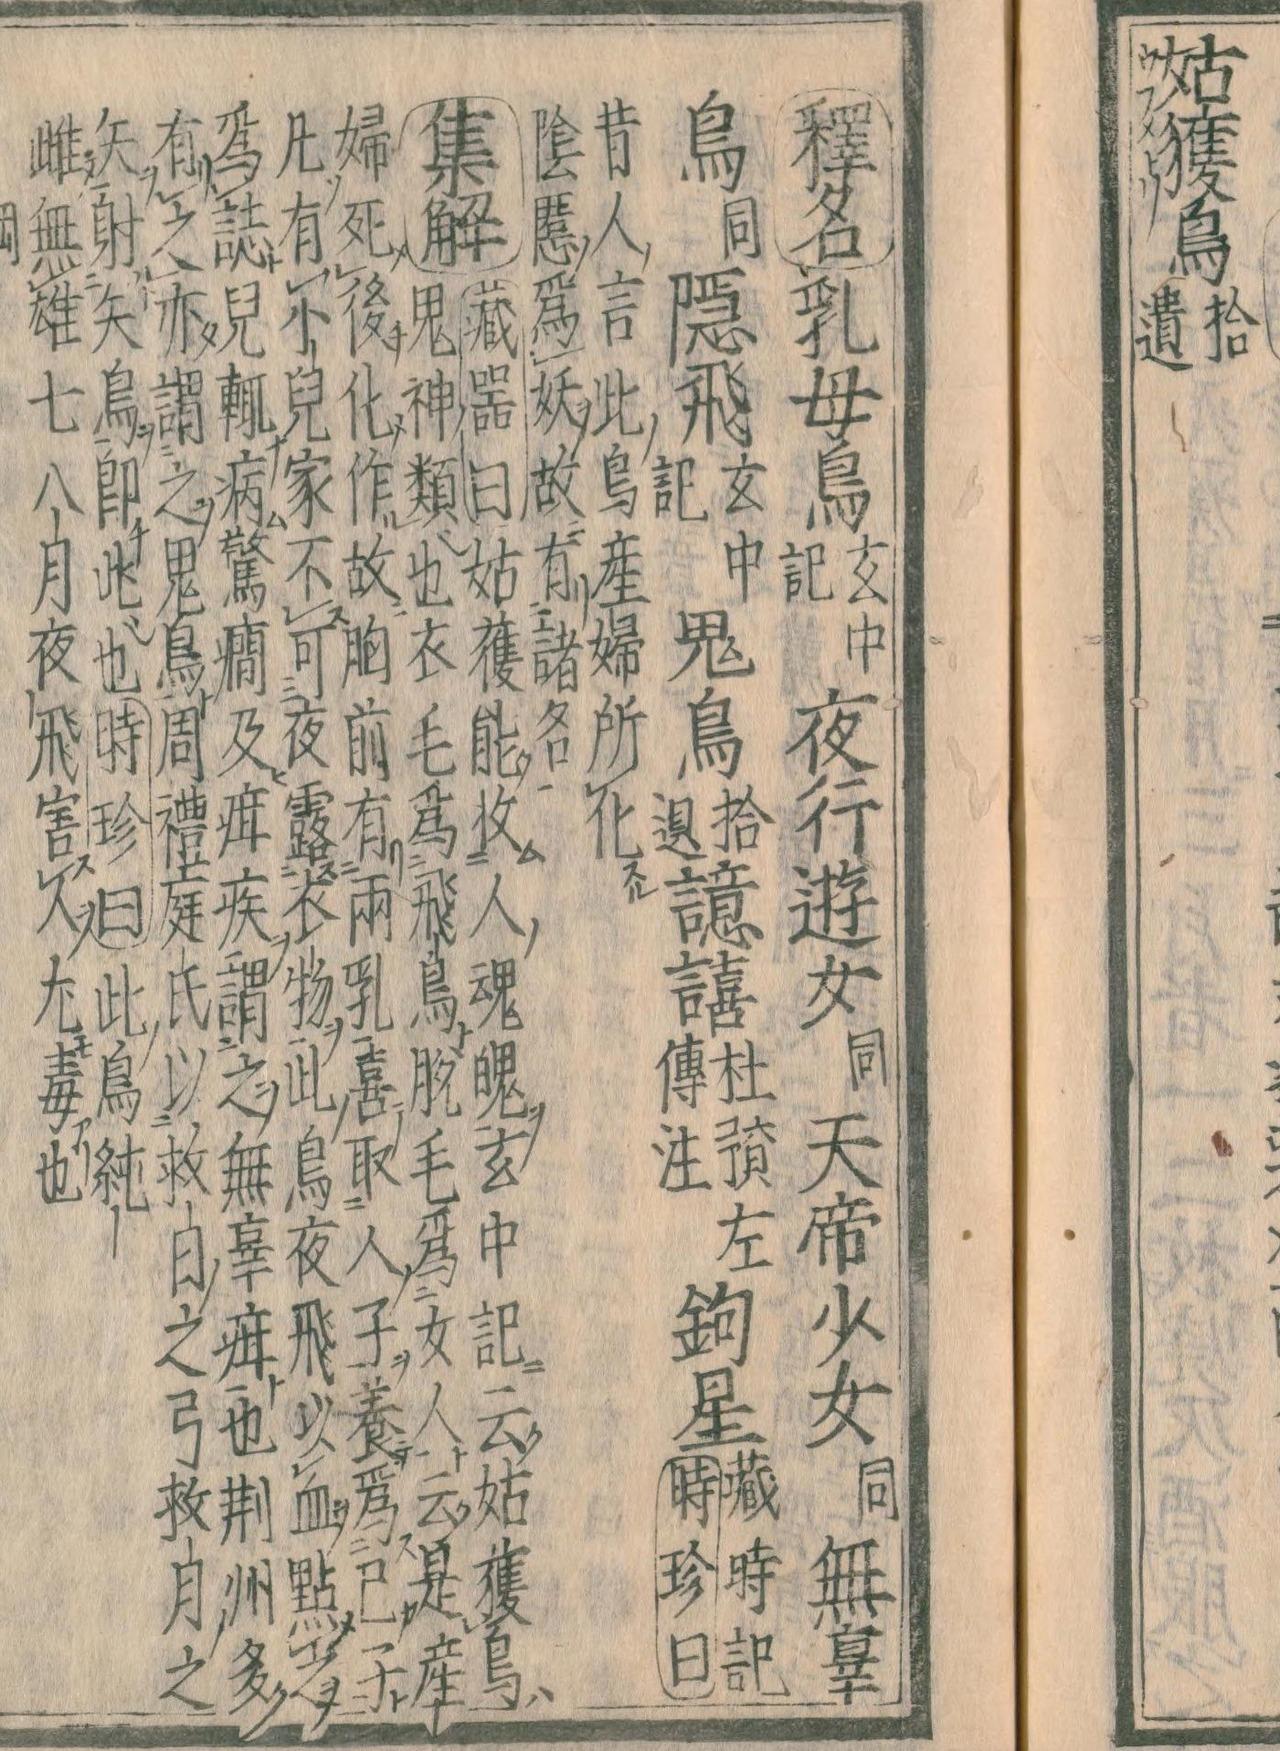 姑獲鳥拾遺
ウフメトリ
釋名乳母鳥玄中記夜行遊女同天帝少女同無辜
鳥同隱飛玄中記鬼鳥拾遺譩譆杜預左傳注鉤星歲時記時珍曰
昔人言此鳥產婦所化
陰慝爲妖故有諸各
集解藏器曰姑獲能收人魂魄玄中記云姑獲鳥
鬼神類也衣毛爲飛鳥脫毛爲女人云是產
婦死後化作故胸前有兩乳喜取人子養爲己子
凡有小兒家不可夜露衣物此鳥夜飛以血點之
爲誌兒輒病驚癇及疳疾謂之無辜疳也荆州多
有之亦謂之鬼鳥周禮庭氏以救日之弓救月之
矢射矢鳥即此也時珍曰此鳥純
雌無雄七八月夜飛害人尤毒也